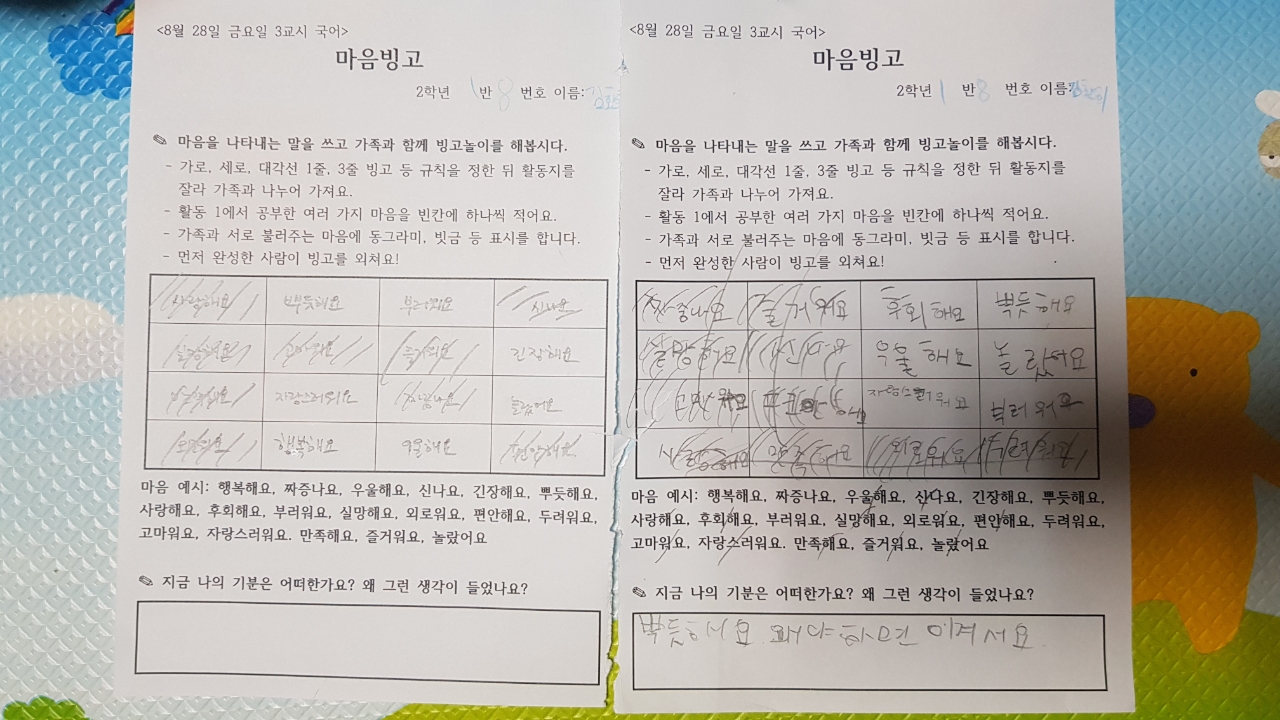 <8월 28일 금요일 3교시 국어>
마음빙고
2학년 1반 8 번호 이름:
✎ 마음을 나타내는 말을 쓰고 가족과 함께 빙고놀이를 해봅시다.
- 가로, 세로, 대각선 1줄, 3줄 빙고 등 규칙을 정한 뒤 활동지를
잘라 가족과 나누어 가져요.
- 활동 1에서 공부한 여러 가지 마음을 빈칸에 하나씩 적어요.
- 가족과 서로 불러주는 마음에 동그라미, 빗금 등 표시를 합니다.
- 먼저 완성한 사람이 빙고를 외쳐요!
사랑해요 뿌듯해요 부러워요 신나요
실망해요 고마워요 즐거워요 긴장해요
자랑스러워요 짜증나요 놀랐어요
외로워요 행복해요 우울해요 편안해요
마음 예시: 행복해요, 짜증나요, 우울해요, 신나요, 긴장해요, 뿌듯해요,
사랑해요, 후회해요, 부러워요, 실망해요, 외로워요, 편안해요, 두려워요,
고마워요, 자랑스러워요. 만족해요, 즐거워요, 놀랐어요
✎ 지금 나의 기분은 어떠한가요? 왜 그런 생각이 들었나요?
<8월 28일 금요일 3교시 국어>
마음빙고
2학년 1 반 8 번호 이름:
✎ 마음을 나타내는 말을 쓰고 가족과 함께 빙고놀이를 해봅시다.
- 가로, 세로, 대각선 1줄, 3줄 빙고 등 규칙을 정한 뒤 활동지를
잘라 가족과 나누어 가져요.
- 활동 1에서 공부한 여러 가지 마음을 빈칸에 하나씩 적어요.
- 가족과 서로 불러주는 마음에 동그라미, 빗금 등 표시를 합니다.
- 먼저 완성한 사람이 빙고를 외쳐요!
짜증나요 즐거워요 후회해요 뿌듯해요
실망해요 신나요 우울해요 놀랐어요
고마워요 편안해요 자랑스러워요 부러워요
사랑해요 만족해요 외로워요 두려워요
마음 예시: 행복해요, 짜증나요, 우울해요, 신나요, 긴장해요, 뿌듯해요,
사랑해요, 후회해요, 부러워요, 실망해요, 외로워요, 편안해요, 두려워요,
고마워요, 자랑스러워요. 만족해요, 즐거워요, 놀랐어요
✎ 지금 나의 기분은 어떠한가요? 왜 그런 생각이 들었나요?
뿌듯해서요 왜야하면 이겨서요.